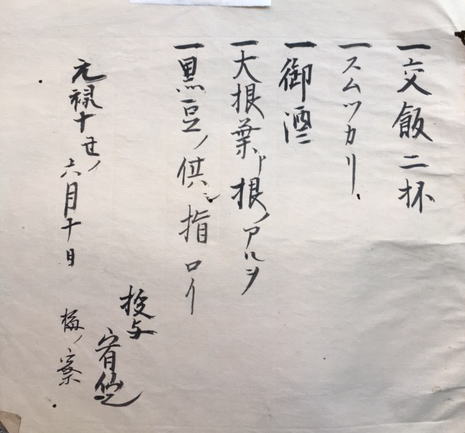 一交飯二杯
一スムツカリ
一御酒
一大根葉ト根ノアルヲ
一黒豆ノ供シ指ロイ
元禄十せノ六月十日
授与 宥仙
梅ノ寮